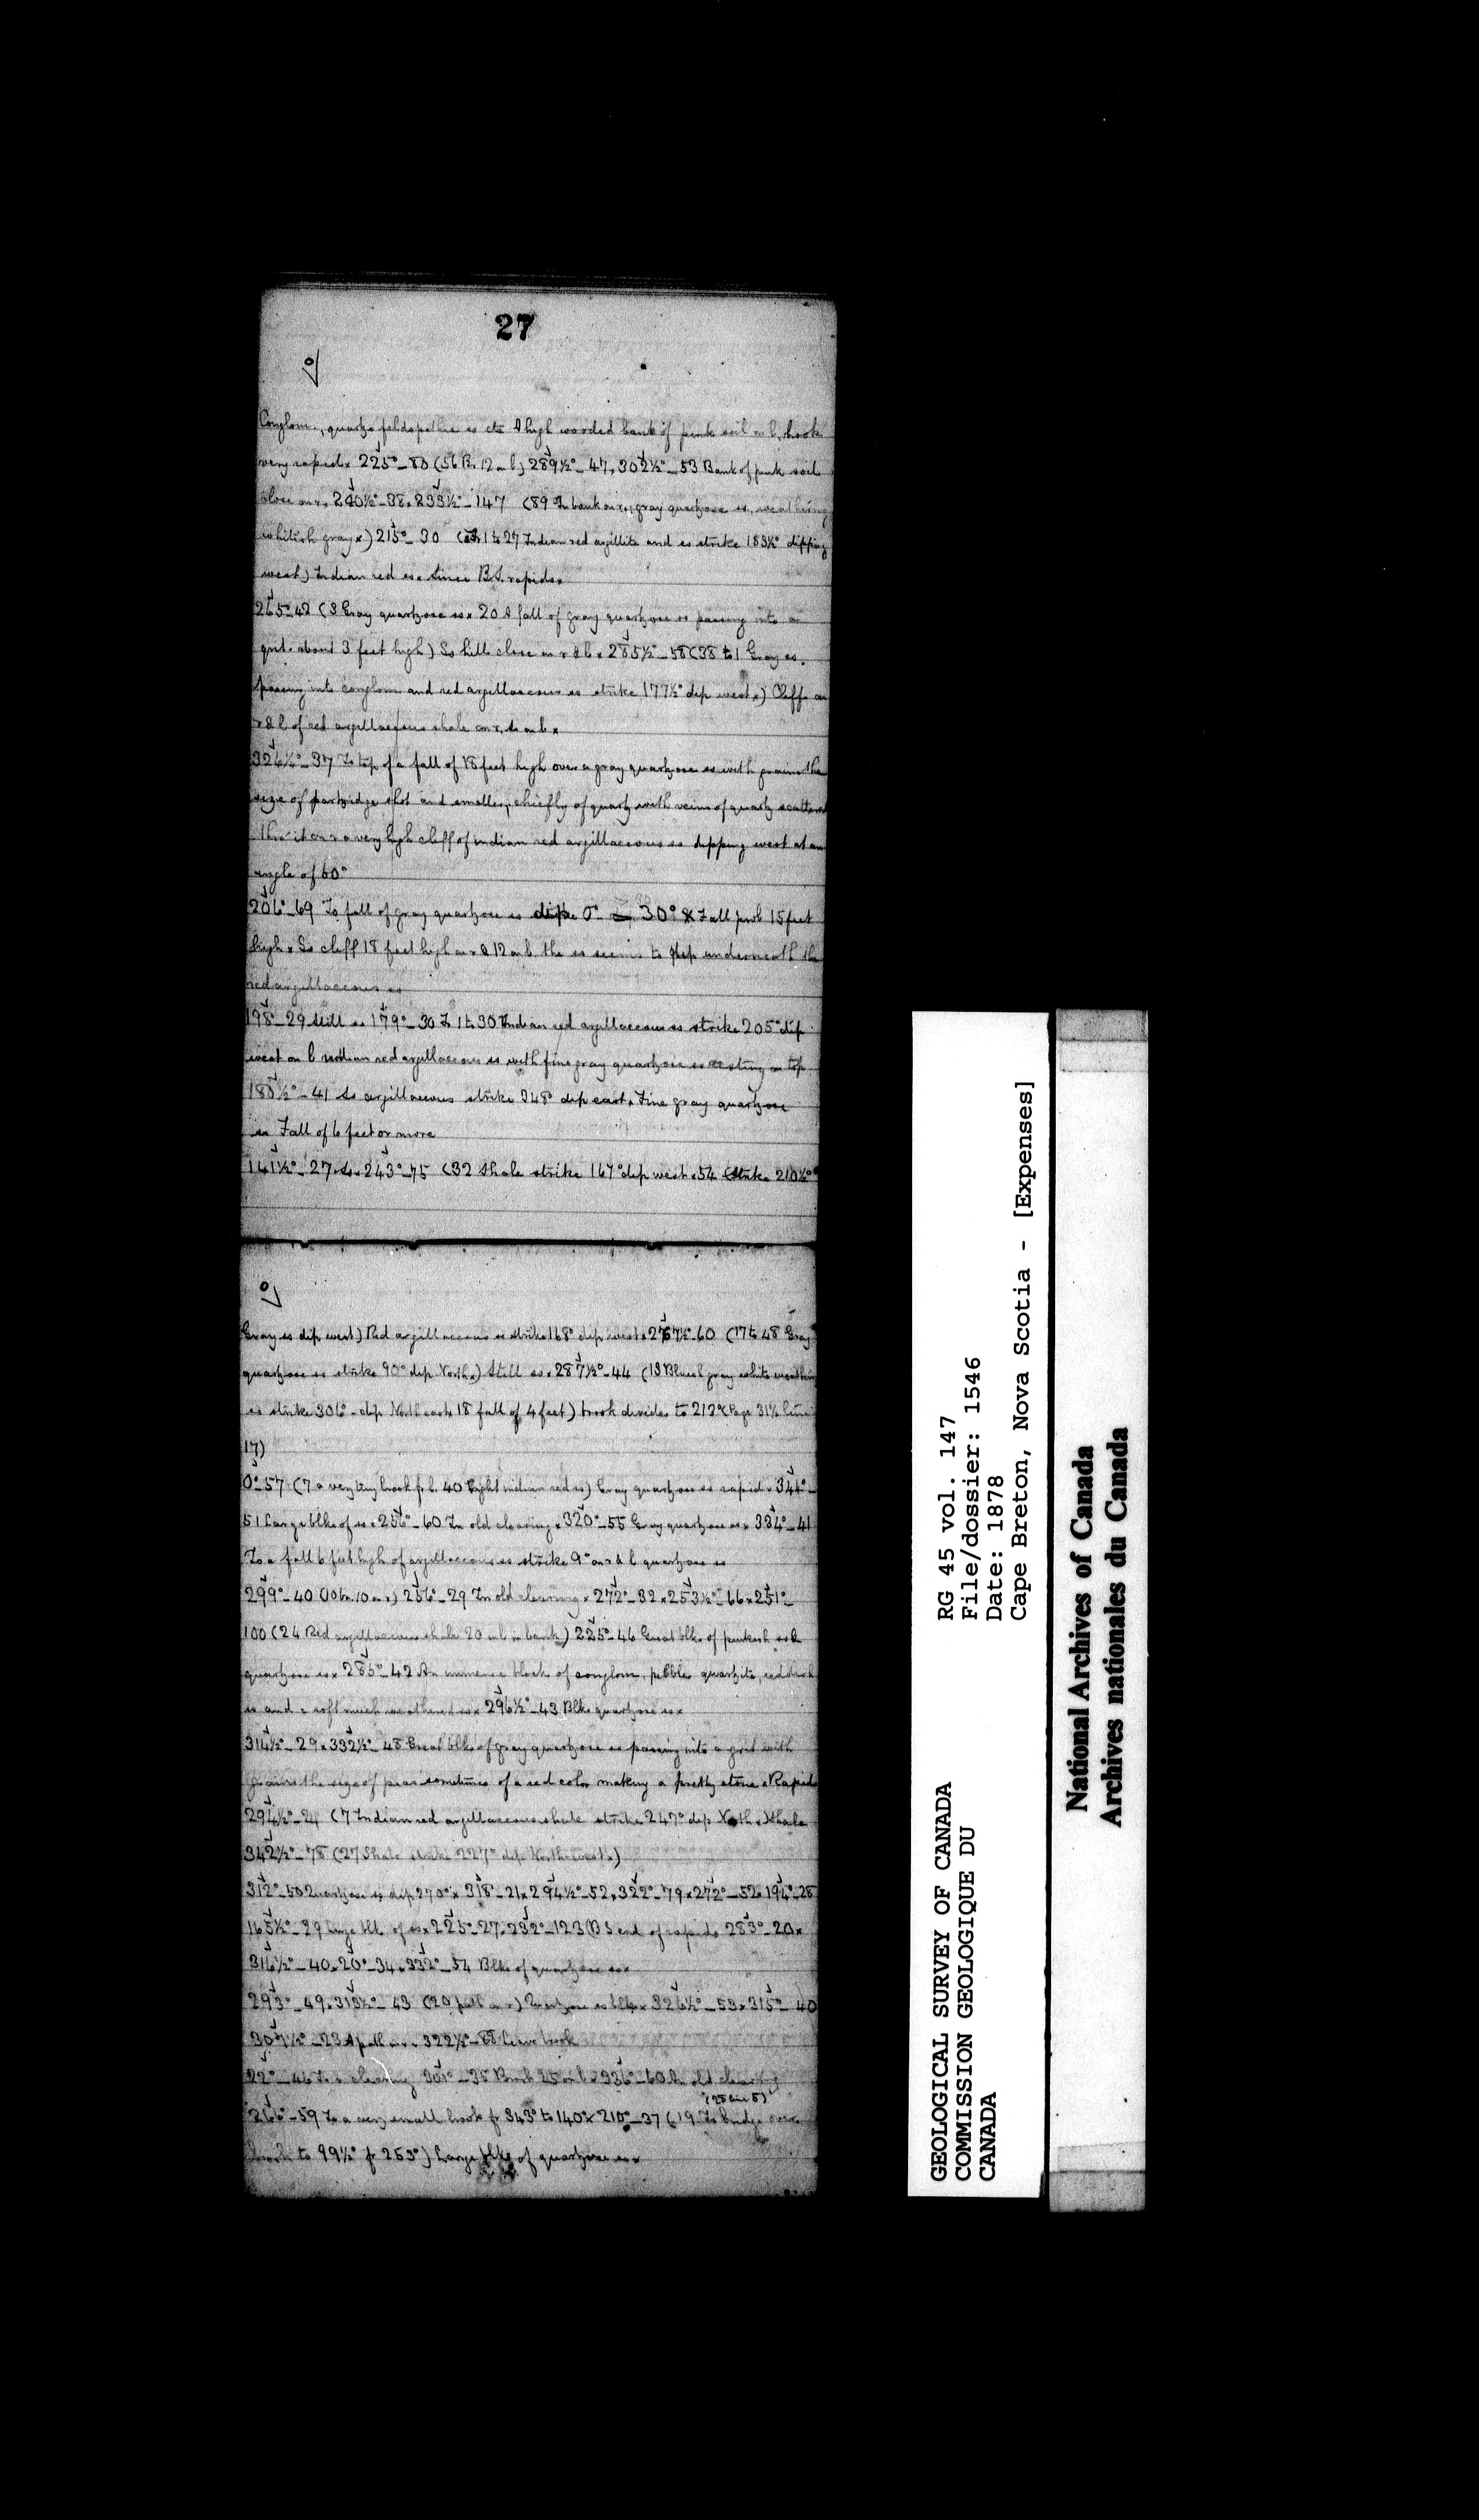 27
Conglom., quartzo feldspathic ss etc A high wooded bank of pink soil on l, brook
very rapid x 225° _ 80 (56 B. 12 on l) 289½° _ 47 x 302½° _ 53 Bank of pink soil
close on r. 240½° _ 38 x 233½° _ 147 (89 In bank on r., gray quartzose ss, weathering
whitish gray x) 215° _ 30 (1 to 27 Indian red argillite and ss strike 183½° dipping
west) Indian red ss x Since B.S. rapids x
265° _ 42 (3 Gray quartzose ss x 20 A fall of gray quartzose ss passing into a
grit. about 3 feet high) So hills close on r & l x 285½° _ 58 (38 to 1 Gray ss.
passing into conglom and red argillaceous ss strike 177½° dip west x) Cliffs on
r & l of red argillaceous shale on r, ss on l x
326½° _ 37 To top of a fall of 18 feet high over a gray quartzose ss with grains the
size of partridge shot and smaller, chiefly of quartz with veins of quartz scattered
thro' it on r a very high cliff of indian red argillaceous ss dipping west at an
angle of 60°
206° _ 69 To fall of gray quartzose ss dip 0° 30° x Fall prob 15 feet
high x So cliff 18 feet high on r & 12 on l the ss seems to dip underneath the
red argillaceous ss
198° _ 29 Still ss 179° _ 30 To 1 to 30 Indian red argillaceous ss strike 205° dip
west on l indian red argillaceous ss with fine gray quartzose ss resting on top
180½° _ 41 So argillaceous strike 248° dip east x Fine gray quartzose
ss Fall of 6 feet or more
141½° _ 27 x So x 243° _ 75 (32 Shale strike 167° dip west x 54 Strike 210½°
Gray ss dip west) Red argillaceous ss strike 168° dip west x 267½° _ 60 (17 to 48 Gray
quartzose ss strike 90° dip North x) Still ss x 287½° _ 44 (13 Blueish gray white weathering
ss strike 306° _ dip North east x 18 fall of 4 feet) brook divides to 213° (Page 31½ line
17)
0° _ 57 (7 a very tiny brook fr l. 40 Light indian red ss) Gray quartzose ss rapid x 344° _
51 Large blks of ss x 256° _ 60 In old clearing x 320° _ 55 Gray quartzose ss x 334° _ 41
To a fall 6 feet high of argillaceous ss strike 9° on r & l quartzose ss
299° _ 40 (10 on r) 256° _ 29 In old clearing x 272° _ 32 x 253½° _ 66 x 251° _
100 (24 Red argillaceous shale 20 on l in bank) 225° _ 46 Great blks of pinkish ss &
quartzose ss x 285° _ 42 An immense block of conglom, pebbles quartzite, reddish
ss and a soft much weathered ss x 296½° _ 43 Blks quartzose ss x
314½° _ 29 x 332½° _ 48 Great blks of gray quartzose ss passing into a grit with
grains the size of peas sometimes of a red color making a pretty stone x Rapids
291½° _ 24 (7 Indian red argillaceous shale strike 247° dip North x Shale
342½° _ 78 (27 Shale strike 227° dip North west x)
312° _ 50 Quartzose ss dip 270° x 318° _ 21 x 294½° _ 52 x 322° _ 79 x 272° _ 52 x 194° _ 28
165½° _ 29 Large blk of ss x 225° _ 27 x 232° _ 123 B S end of rapids 283° _ 20 x
316½° _ 40 x 20° _ 34 x 332° _ 54 Blks of quartzose ss x
293° _ 49 x 313½° _ 43 (20 path on r) Quartzose ss blks x 326½° _ 53 x 315° _ 40
307½° _ 23 A path on r x 322½° _ 68 Leave brook
22° _ 46 To a clearing 301° _ 35 Brook 25 on l x 336° _ 60 An old clearing
(28 line 5)
266° _ 59 To a very small brook fr 343° to 140° x 210° _ 37 (19 To bridge over
brook to 99½° fr 253°) Large blks of quartzose ss x
GEOLOGICAL SURVEY OF CANADA
COMMISSION GEOLOGIQUE DU
CANADA
RG 45 vol. 147
File/dossier: 1546
Date: 1878
Cape Breton, Nova Scotia - [Expenses]
National Archives of Canada
Archives nationales du Canada